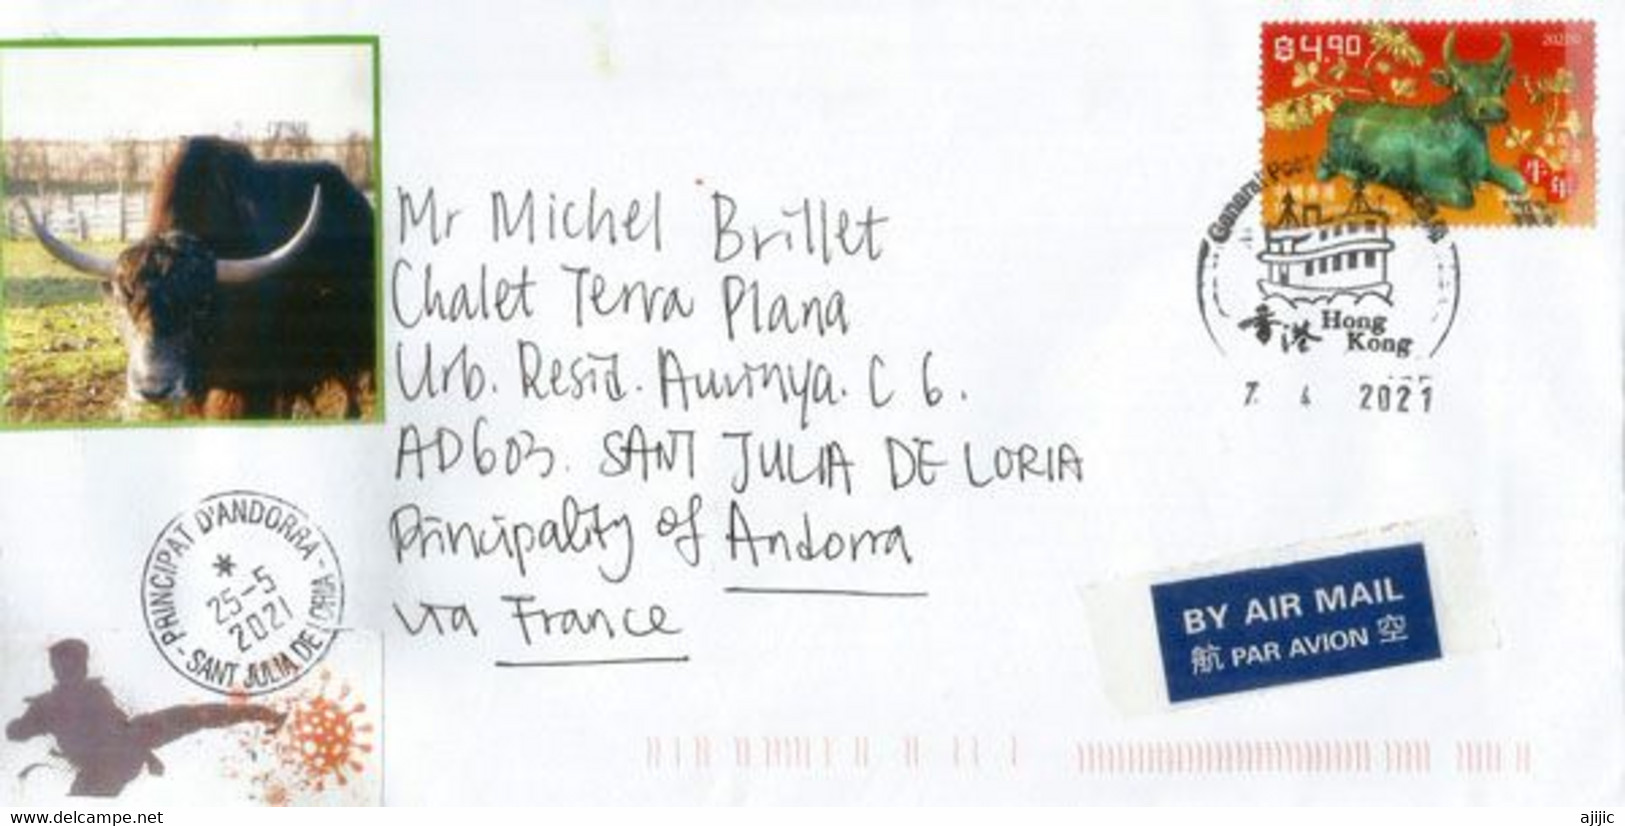 $4.90
牛年
General Post Office Hong Kong
香港 Hong
Kong
7. 4 2021
Mr Michel Brillet
Chalet Terra Plana
Urb. Resid. Auvinya. C 6.
AD603. SANT JULIA DE LORIA
Principality of Andorra
via France
PRINCIPAT D'ANDORRA
*
25-5
2021
SANT JULIA DE LORIA
BY AIR MAIL
航 PAR AVION 空
www.delcampe.net
ajijic